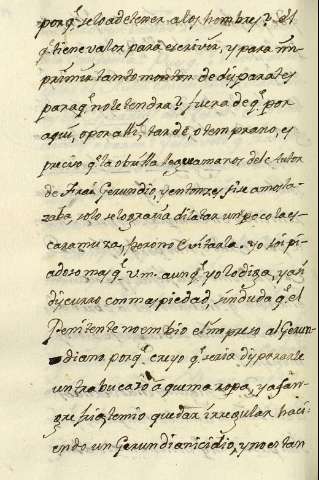 porq.̃ se loa de temer a los hombres? El
q.̃ tiene valor para escrivir, y para im-
primir tanto monton de disparates
para q.̃ no le tendra? fuera de q.̃ por
aqui, o por alli, tarde, o temprano, es
preciso q.̃ la obrilla llegue a manos del Autor
de Frai Gerundio, y entonzes, si se amosta-
zaba, solo se lograria dilatar un poco la es-
caramuza, pero no evitarla. Yo soi pi-
adoso mas q.̃ Vm. aunq.̃ yo lo diga, y assi
discurro con mas piedad, sin duda q.̃ el
Penitente no embio el impreso al Gerun-
diano porq.̃ creyo q.̃ seria dispararle
un trabucazo à quema ropa, y a san-
gre fria temio quedar irregular haci-
endo un Gerundianicidio, y no es tan